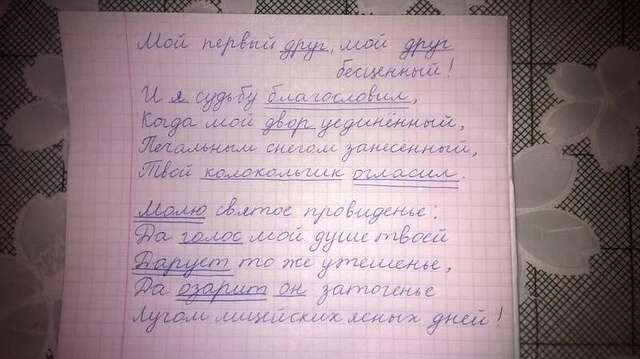 Мой первый друг, мой друг
бесценный!
И я судьбу благословил,
Когда мой двор уединённый,
Печальным снегом занесённый,
Твой колокольчик огласил.
Молю святое провиденье:
Да голос мой душе твоей
Дарует то же утешенье,
Да озарит он заточенье
Лучом лицейских ясных дней!